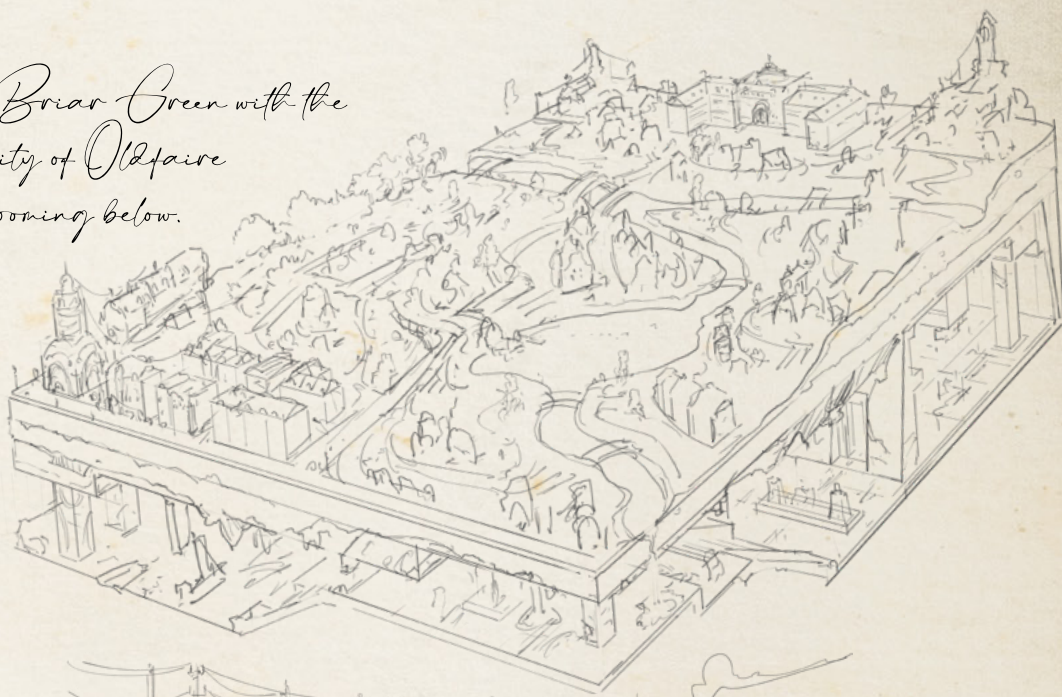 Briar Green with the
ity of Oldfaire
ooming below.